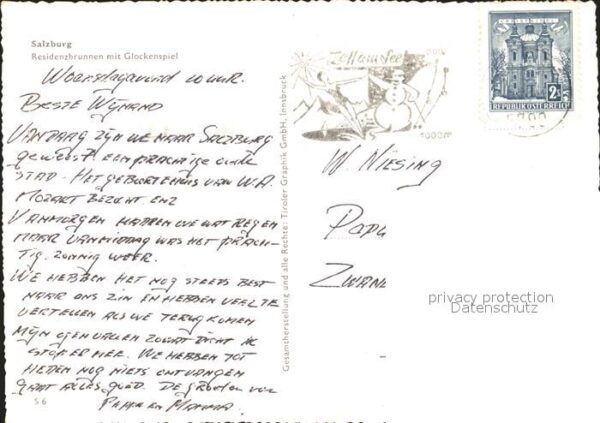 Salzburg
Residenzbrunnen mit Glockenspiel
Woensdagavond 10 uur.
Beste Wijnand
Vandaag zijn we naar Salzburg
geweest een prachtige oude
stad. Het geboortehuis van W.A.
Mozart bezocht. enz
Vanmorgen hadden we wat regen
maar vanmiddag was het prach-
tig zonnig weer.
We hebben het nog steeds best
naar ons zin en hebben veel te
vertellen als we terug komen
Mijn ogen vallen zowat dicht ik
stop er mee. We hebben tot
heden nog niets ontvangen
gaat alles goed. De groeten van
Pappa en Mamma.
S 6
Gesamtherstellung und alle Rechte: Tiroler Graphik GmbH, Innsbruck
Zell am See
1000m
2S
REPUBLIK ÖSTERREICH
W. Niesing
Papl
Zwane
privacy protection
Datenschutz